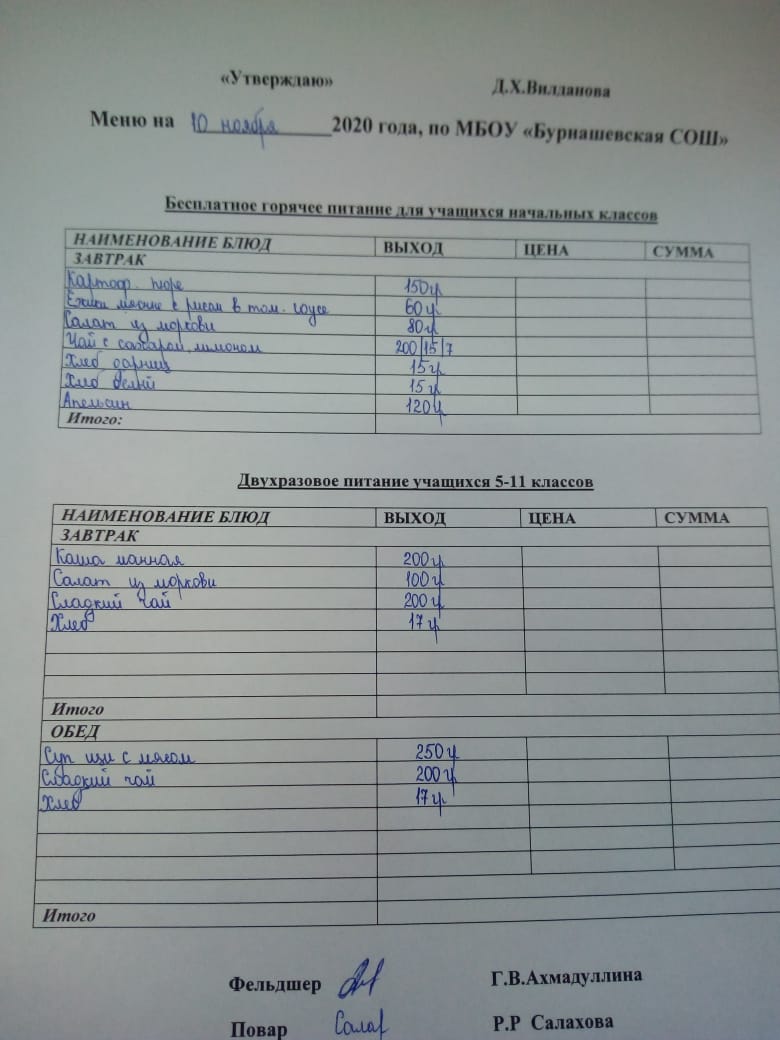 «Утверждаю» Д.Х.Вилданова
Меню на 10 ноября 2020 года, по МБОУ «Бурнашевская СОШ»
Бесплатное горячее питание для учащихся начальных классов
НАИМЕНОВАНИЕ БЛЮД ВЫХОД ЦЕНА СУММА
ЗАВТРАК
Картоф. пюре 150 г
Ежики мясные с рисом в том. соусе 60 г
Салат из моркови 80 г
Чай с сахаром, лимоном 200/15/7
Хлеб 15 г
Хлеб белый 15 г
Апельсин 120 г
Итого:
Двухразовое питание учащихся 5-11 классов
НАИМЕНОВАНИЕ БЛЮД ВЫХОД ЦЕНА СУММА
ЗАВТРАК
Каша манная 200 г
Салат из моркови 100 г
Сладкий чай 200 г
Хлеб 17 г
Итого
ОБЕД
Суп щи с мясом 250 г
Сладкий чай 200 г
Хлеб 17 г
Итого
Фельдшер Г.В.Ахмадуллина
Повар Салах Р.Р Салахова